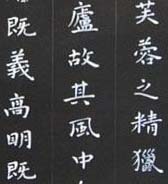 芙蓉之精獵
廬故其風中
既義高明既